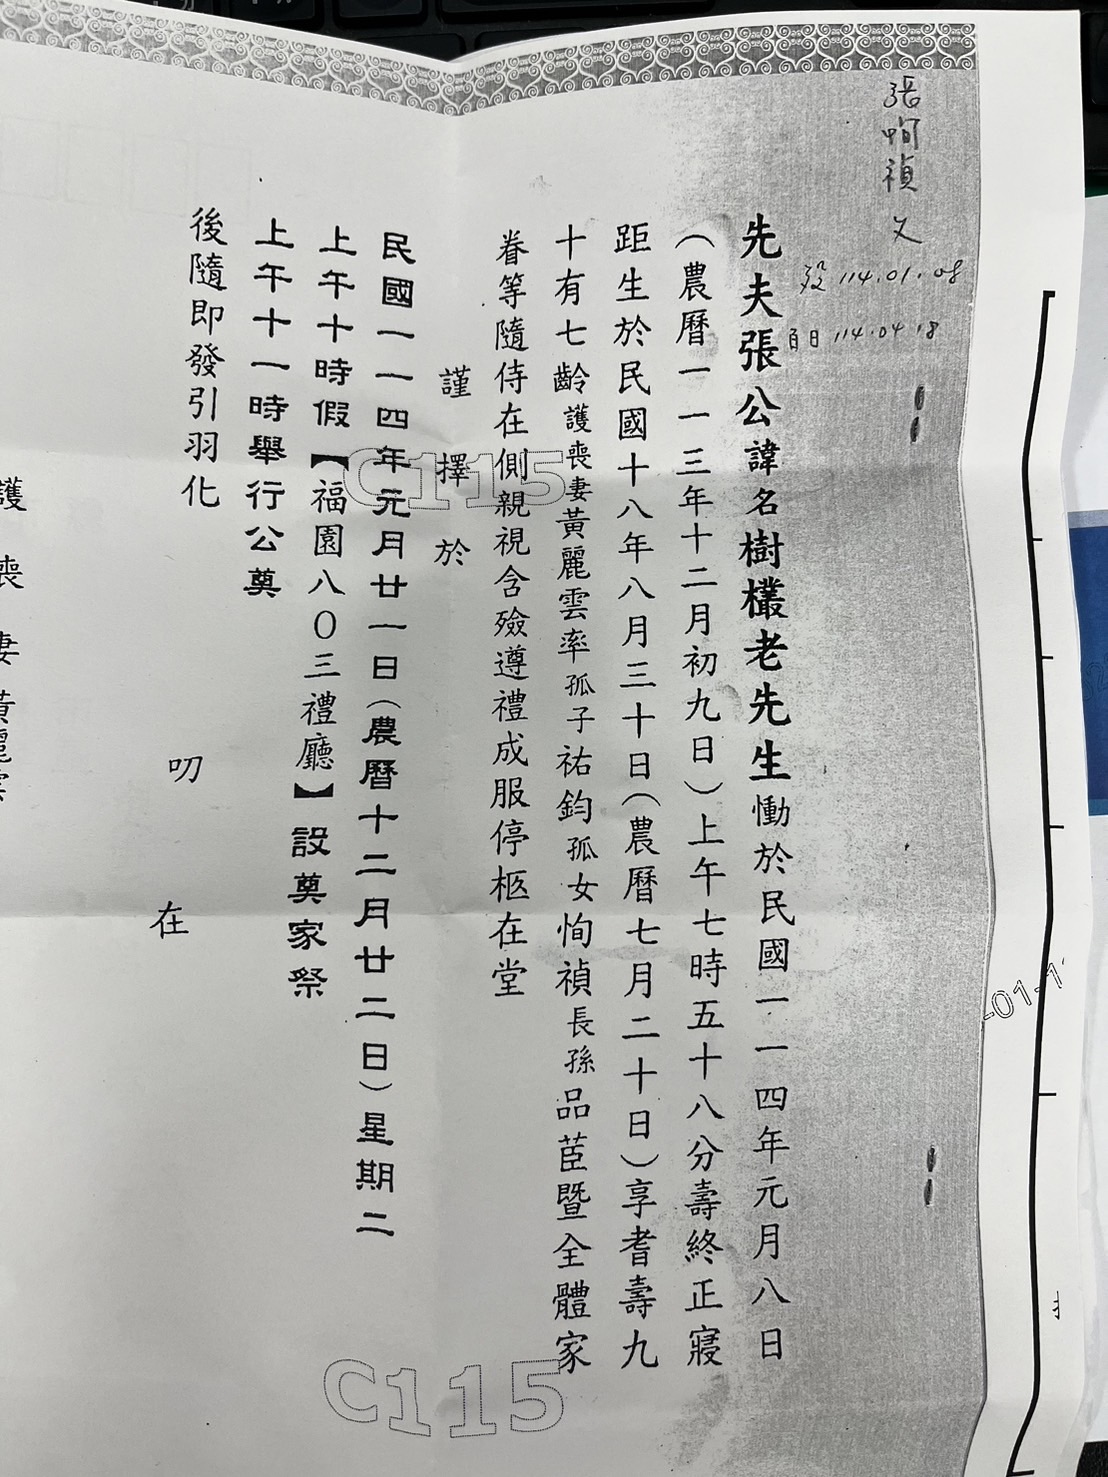 張恂禎 父
歿 114.01.08
百日 114.04.18
先夫張公諱名樹欉老先生慟於民國一一四年元月八日
(農曆一一三年十二月初九日)上午七時五十八分壽終正寢
距生於民國十八年八月三十日(農曆七月二十日)享耆壽九
十有七齡護喪妻黃麗雲率孤子祐鈞孤女恂禎長孫品茞暨全體家
眷等隨侍在側親視含殮遵禮成服停柩在堂
謹擇於
民國一一四年元月廿一日(農曆十二月廿二日)星期二
上午十時假【福園八０三禮廳】設奠家祭
上午十一時舉行公奠
後隨即發引羽化
叨在
護喪妻黃麗雲
C115
C115
-01-1